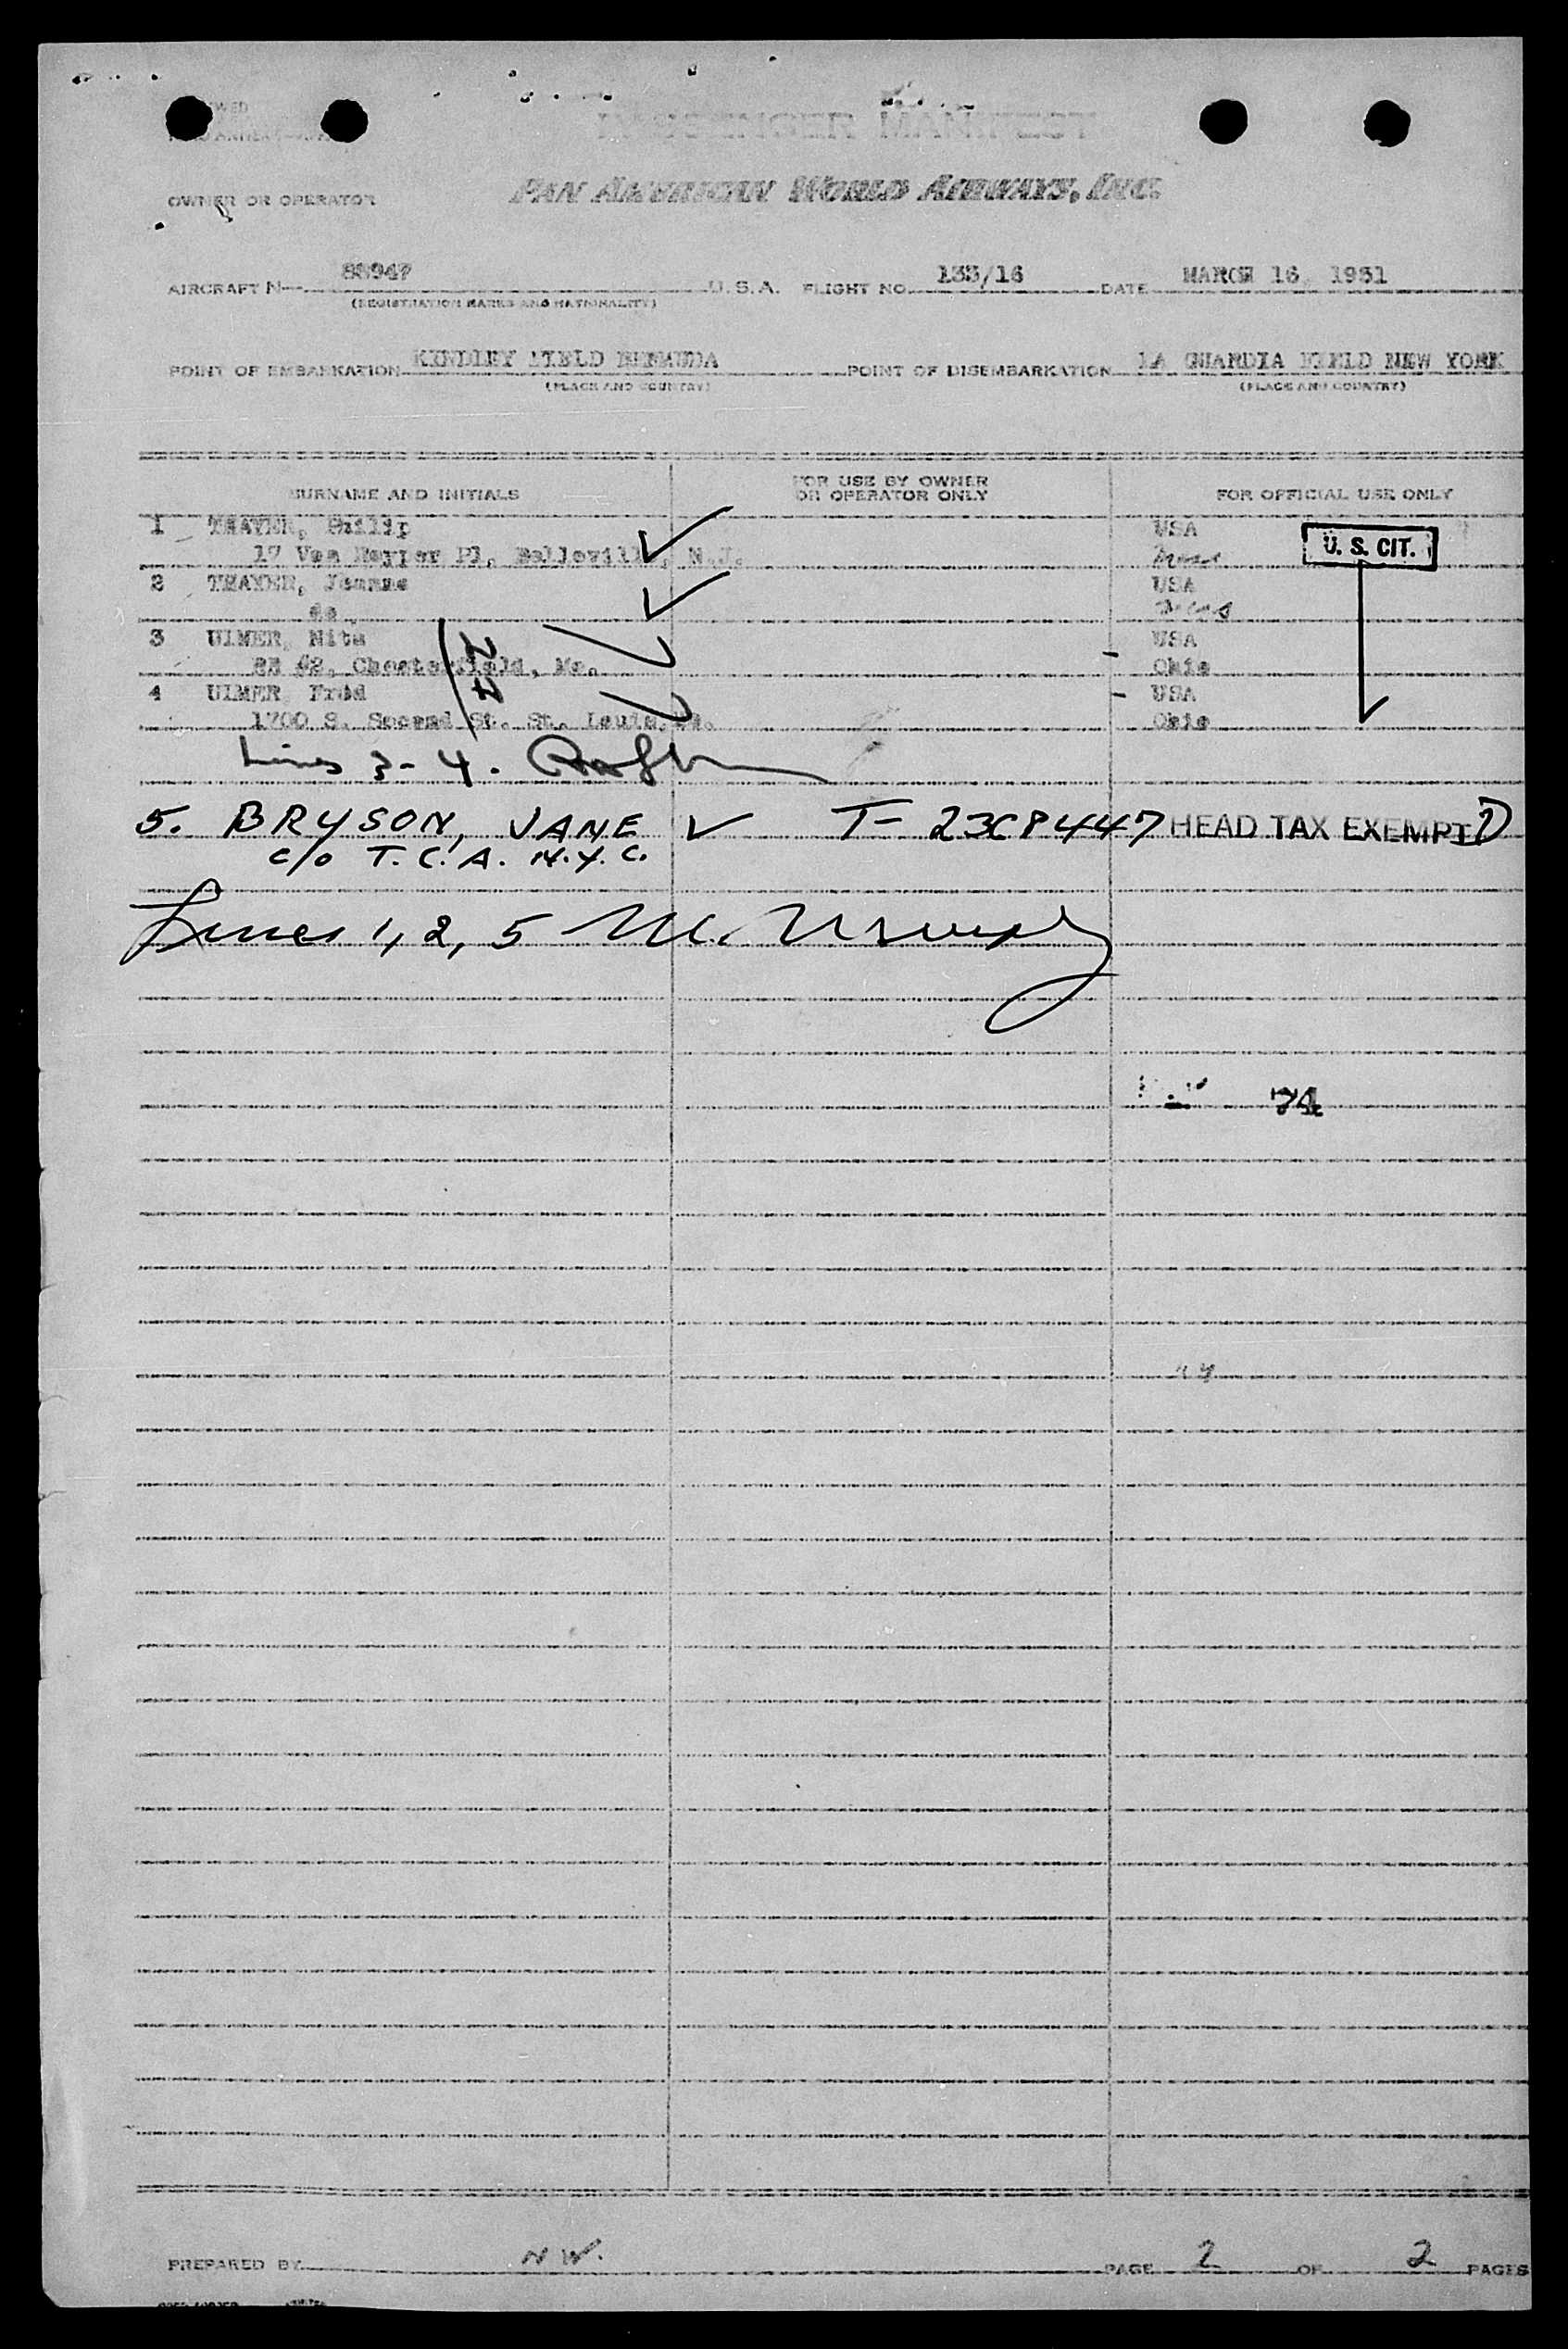 PASSENGER MANIFEST
OWNER OR OPERATOR PAN AMERICAN WORLD AIRWAYS, INC.
AIRCRAFT N— 88947 U.S.A. FLIGHT NO. 133/16 DATE MARCH 16, 1951
(REGISTRATION MARKS AND NATIONALITY)
POINT OF EMBARKATION KINDLEY FIELD BERMUDA POINT OF DISEMBARKATION LA GUARDIA FIELD NEW YORK
(PLACE AND COUNTRY) (PLACE AND COUNTRY)
SURNAME AND INITIALS FOR USE BY OWNER OR OPERATOR ONLY FOR OFFICIAL USE ONLY
1 THAYER, Philip USA
17 Van Pl, Belleville, N.J. U. S. CIT.
2 THAYER, Jeanne USA
do
3 ULMER, Nita USA
RR #2, Chesterfield, Mo. Ohio
4 ULMER Fred USA
1700 S. Second St. St. Louis, Mo. Ohio
Lines 3-4.
5. BRYSON, JANE T- 23C8447 HEAD TAX EXEMPT D
c/o T.C.A. N.Y.C.
Lines 1, 2, 5 M.
74
PREPARED BY NW. PAGE 2 OF 2 PAGES